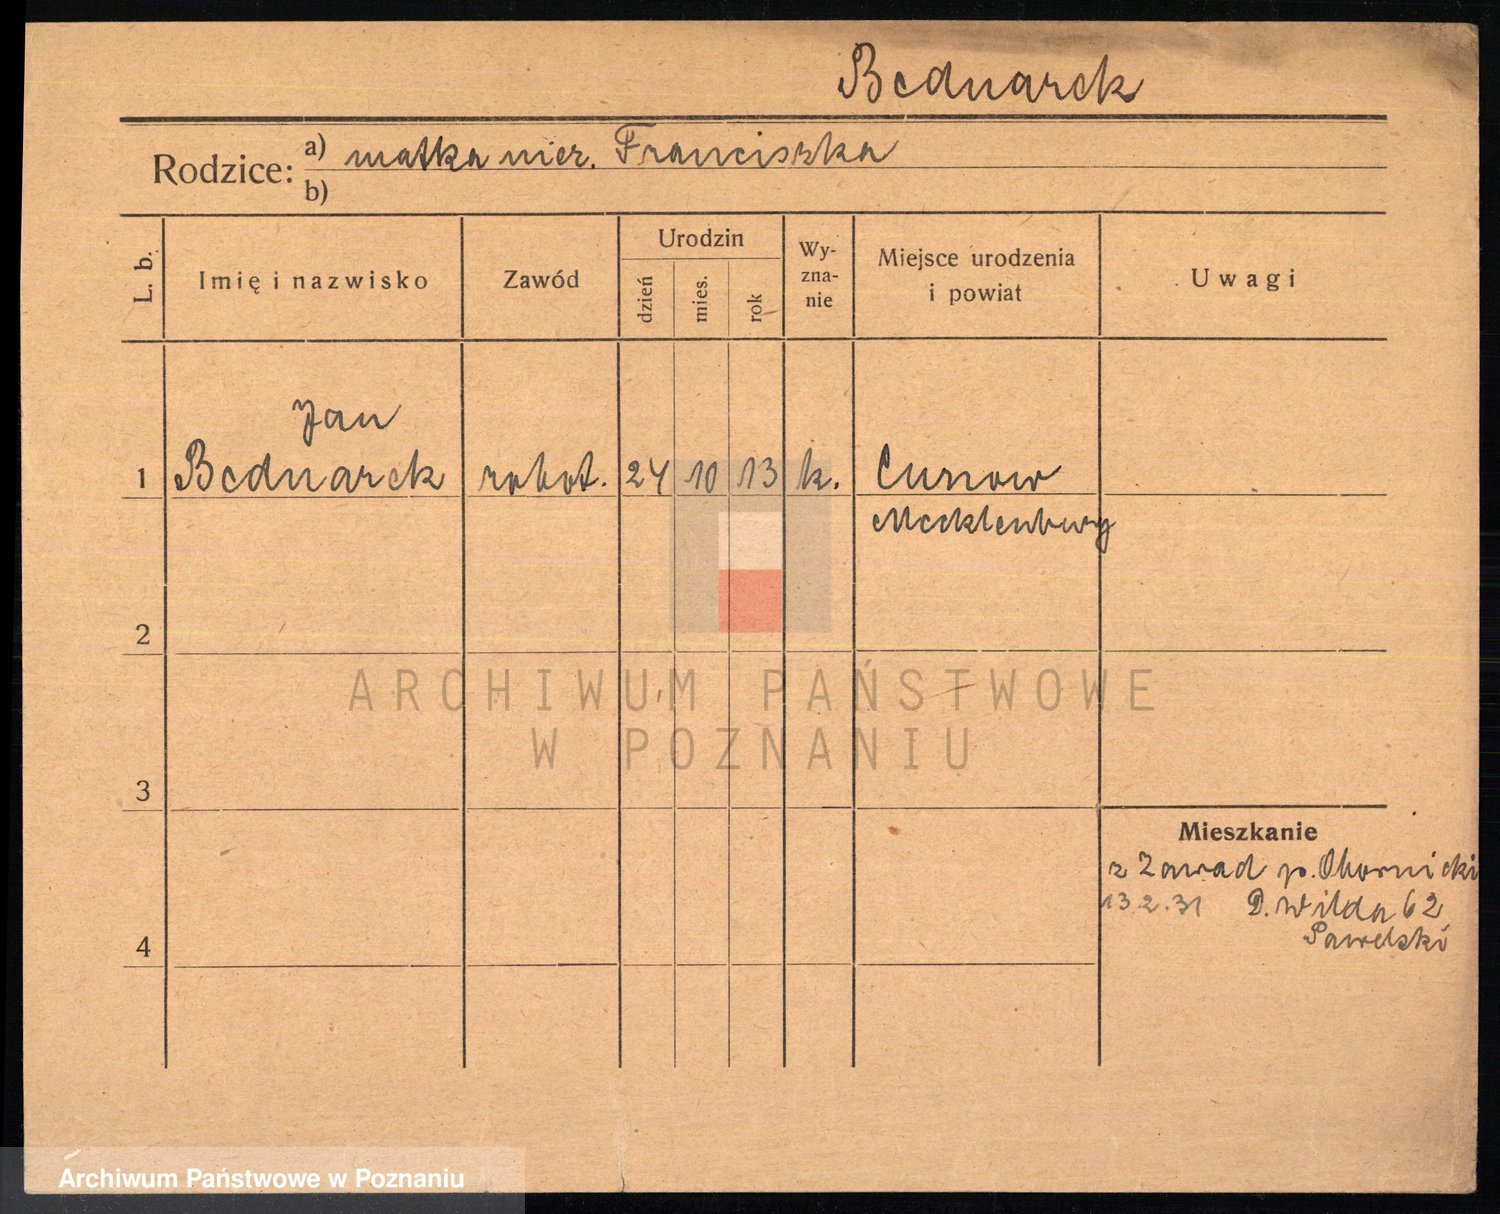 Bednarek
Rodzice: a) matka niez. Franciszka
b)
L. b.
Imię i nazwisko
Zawód
Urodzin
dzień
mies.
rok
Wy-
zna-
nie
Miejsce urodzenia
i powiat
Uwagi
Jan
1 Bednarek robot. 24 10 13 k. Cursow
Mecklenburg
2
ARCHIWUM PAŃSTWOWE
W POZNANIU
3
Mieszkanie
z Zawad p. Obornicki
13.2.31 D. Wilda 62
Pawelski
4
Archiwum Państwowe w Poznaniu